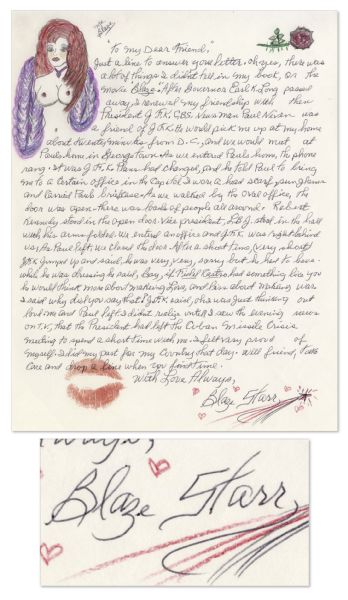 "To my Dear Friend,"
Just a line to answer your letter. Oh yes, there was
a lot of things I didn't tell in my book, or the
movie Blaze. After Governor Earl K. Long passed
away, I renewed my friendship with then
President J.F.K. C.B.S. News man Paul Niven was
a friend of J.F.K. He would pick me up at my home
about twenty minutes from D.C, and we would meet at
Pauls home in Georgetown. As we entered Pauls home, the phone
rang. It was J.F.K. Plans had changed, and he told Paul to bring
me to a certain office in the Capitol. I wore a head scarf, sunglasses
and carried Pauls briefcase. As we walked by the Oval office, the
door was open. there was loads of people all around. Robert
Kennedy stood in the open door. Vice president, L.B.J. stood in the hall
with his arms folded. We entered an office and J.F.K. was right behind
us, As Paul left, we closed the door. After a short time, (very short)
J.F.K. jumped up and said, he was very, very, sorry but he had to leave.
while he was dressing he said, boy, if Fidel Castro had something like you
he would think more about making Love, and less about making war.
I said why did you say that? J.F.K. said, oh I was Just thinking out
loud. me and Paul left. I didn't realize until I saw the Evening news
on T.V., that the President had left the Cuban Missile Crisis
meeting to spend a short time with me. I felt very proud of
myself. I did my part for my Country that day. Well friend, Take
Care and drop a line when you find time.
With Love Always,
Blaze Starr
Always,
Blaze Starr